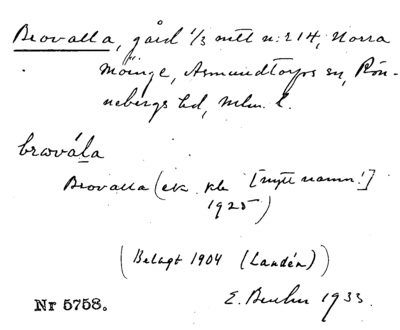 Brovalla, gård 1/3 mtl n:r 14, Norra
Möinge, Asmundtorps sn, Rön-
nebergs hd, Mlm. l.
brωvála
Brovalla (ek. kb [nytt namn!]
1925)
(Belagt 1904 (Landén))
E. 1933.
Nr 5758.